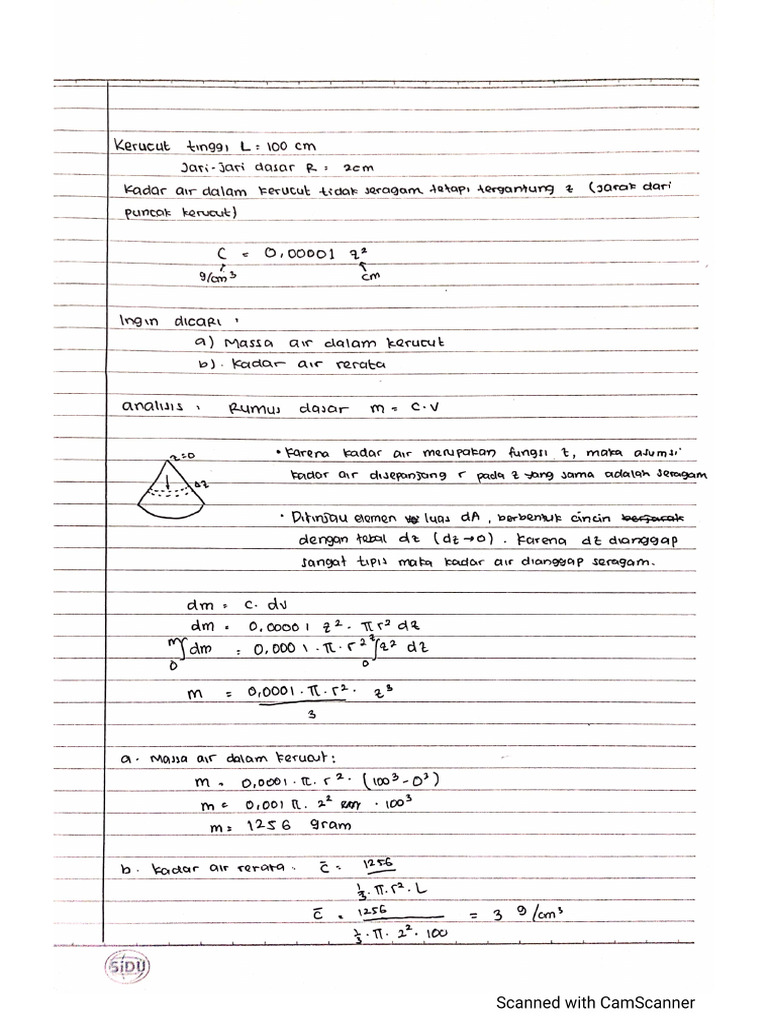 Kerucut tinggi L = 100 cm
Jari-jari dasar R = 2cm
Kadar air dalam kerucut tidak seragam tetapi tergantung z (jarak dari
puncak kerucut)
C = 0,00001 z²
g/cm³ cm
Ingin dicari :
a) Massa air dalam kerucut
b). Kadar air rerata
analisis : Rumus dasar m = c.v
z=0
Δz
• Karena kadar air merupakan fungsi z, maka asumsi
kadar air disepanjang r pada z yang sama adalah seragam
• Ditinjau elemen luas dA, berbentuk cincin berjarak
dengan tebal dz (dz→0). Karena dz dianggap
sangat tipis maka kadar air dianggap seragam.
dm = c. dv
dm = 0,00001 z² · π r² dz
m∫0 dm = 0,0001 · π · r² z∫0 z² dz
m = 0,0001 · π · r² · z³
3
a. Massa air dalam kerucut :
m = 0,0001 · π · r² · (100³ - 0³)
m = 0,001 π · 2² · 100³
m = 1256 gram
b. Kadar air rerata. c̄ = 1256
⅓ · π · r² · L
c̄ = 1256 = 3 g/cm³
⅓ · π · 2² · 100
SiDU
Scanned with CamScanner